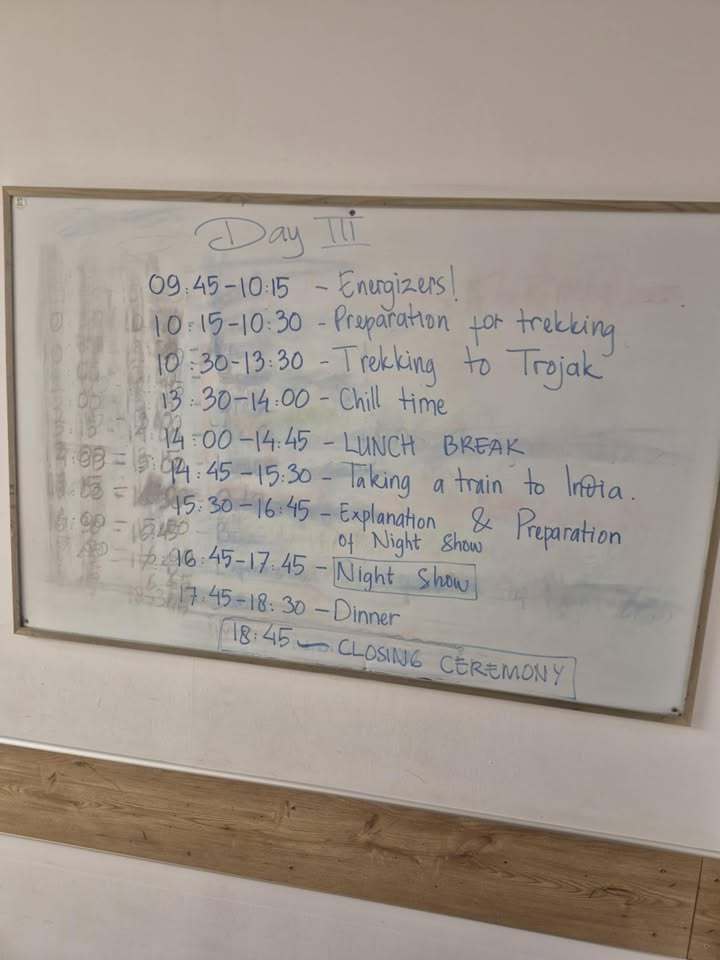 Day III
09:45-10:15 - Energizers!
10:15-10:30 - Preparation for trekking
10:30-13:30 - Trekking to Trojak
13:30-14:00 - Chill time
14:00-14:45 - LUNCH BREAK
14:45-15:30 - Taking a train to India.
15:30-16:45 - Explanation & Preparation
of Night Show
16:45-17:45 - Night Show
17:45-18:30 - Dinner
18:45 - CLOSING CEREMONY